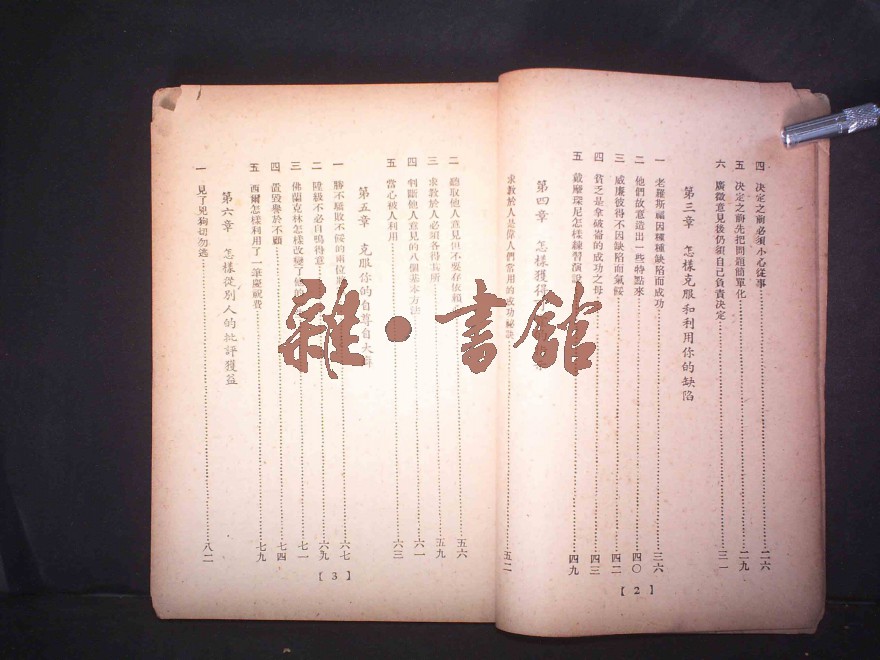 四 決定之前必須小心從事……二六
五 決定之前先把問題簡單化……二九
六 廣徵意見後仍須自己負責决定……三一
第三章 怎樣克服和利用你的缺陷
一 老羅斯福因種種缺陷而成功……三六
二 他們故意造出一些特點來……四〇
三 威廉彼得不因缺陷而氣餒……四二
四 貧乏是拿破崙的成功之母……四三
五 戴摩瑟尼怎樣練習演說……四九
第四章 怎樣獲得
一 求教於人是偉人們常用的成功祕訣……五二
【2】
二 聽取他人意見但不要存依賴……五六
三 求教於人必須各得其所……五九
四 判斷他人意見的八個基本方法……六一
五 當心被人利用……六三
第五章 克服你的自尊自大
一 勝不驕敗不餒的兩位……六七
二 陞級不必自鳴得意……六九
三 佛蘭克林怎樣改變了他的……七一
四 置毀譽於不顧……七四
五 西爾怎樣利用了一筆慶祝費……七九
第六章 怎樣從別人的批評獲益
一 見了兇狗切勿逃……八二
【3】
雜·書館